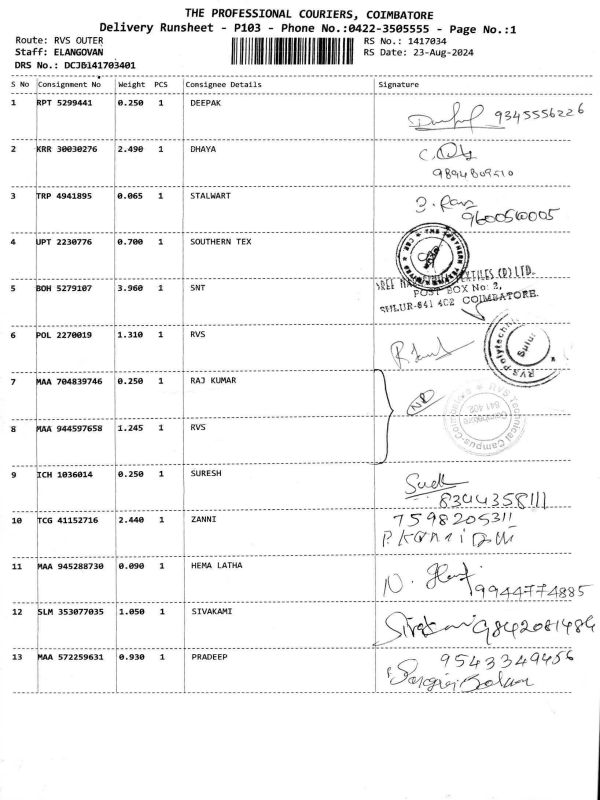 THE PROFESSIONAL COURIERS, COIMBATORE
Delivery Runsheet - P103 - Phone No.:0422-3505555 - Page No.:1
Route: RVS OUTER RS No.: 1417034
Staff: ELANGOVAN RS Date: 23-Aug-2024
DRS No.: DCJB141703401
S No Consignment No Weight PCS Consignee Details Signature
1 RPT 5299441 0.250 1 DEEPAK
9345556226
2 KRR 30030276 2.490 1 DHAYA
3 TRP 4941895 0.065 1 STALWART
9600560005
4 UPT 2230776 0.700 1 SOUTHERN TEX
5 BOH 5279107 3.960 1 SNT
SREE TEXTILES (P) LTD.
POST BOX No: 2,
SULUR-641 402 COIMBATORE.
6 POL 2270019 1.310 1 RVS
RVS Polytechnic
Sulur
7 MAA 704839746 0.250 1 RAJ KUMAR
RVS Technical Campus-Coimbatore
641 402
8 MAA 944597658 1.245 1 RVS
9 ICH 1036014 0.250 1 SURESH
8344358111
10 TCG 41152716 2.440 1 ZANNI
7598205311
11 MAA 945288730 0.090 1 HEMA LATHA
9944774885
12 SLM 353077035 1.050 1 SIVAKAMI
Sivakami 9842081484
13 MAA 572259631 0.930 1 PRADEEP
9543349456